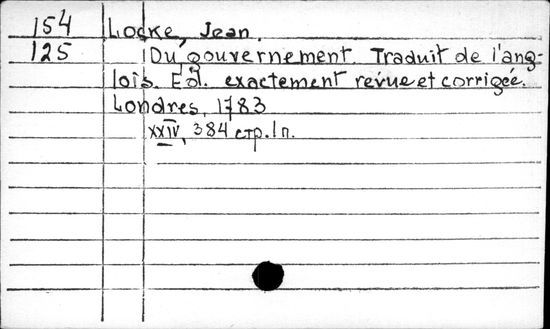 154 Locke, Jean.
125 Du gouvernement. Traduit de l'ang-
lois. Ed. exactement revue et corrigée.
Londres, 1783
XXIV, 384 стр. 1 п.